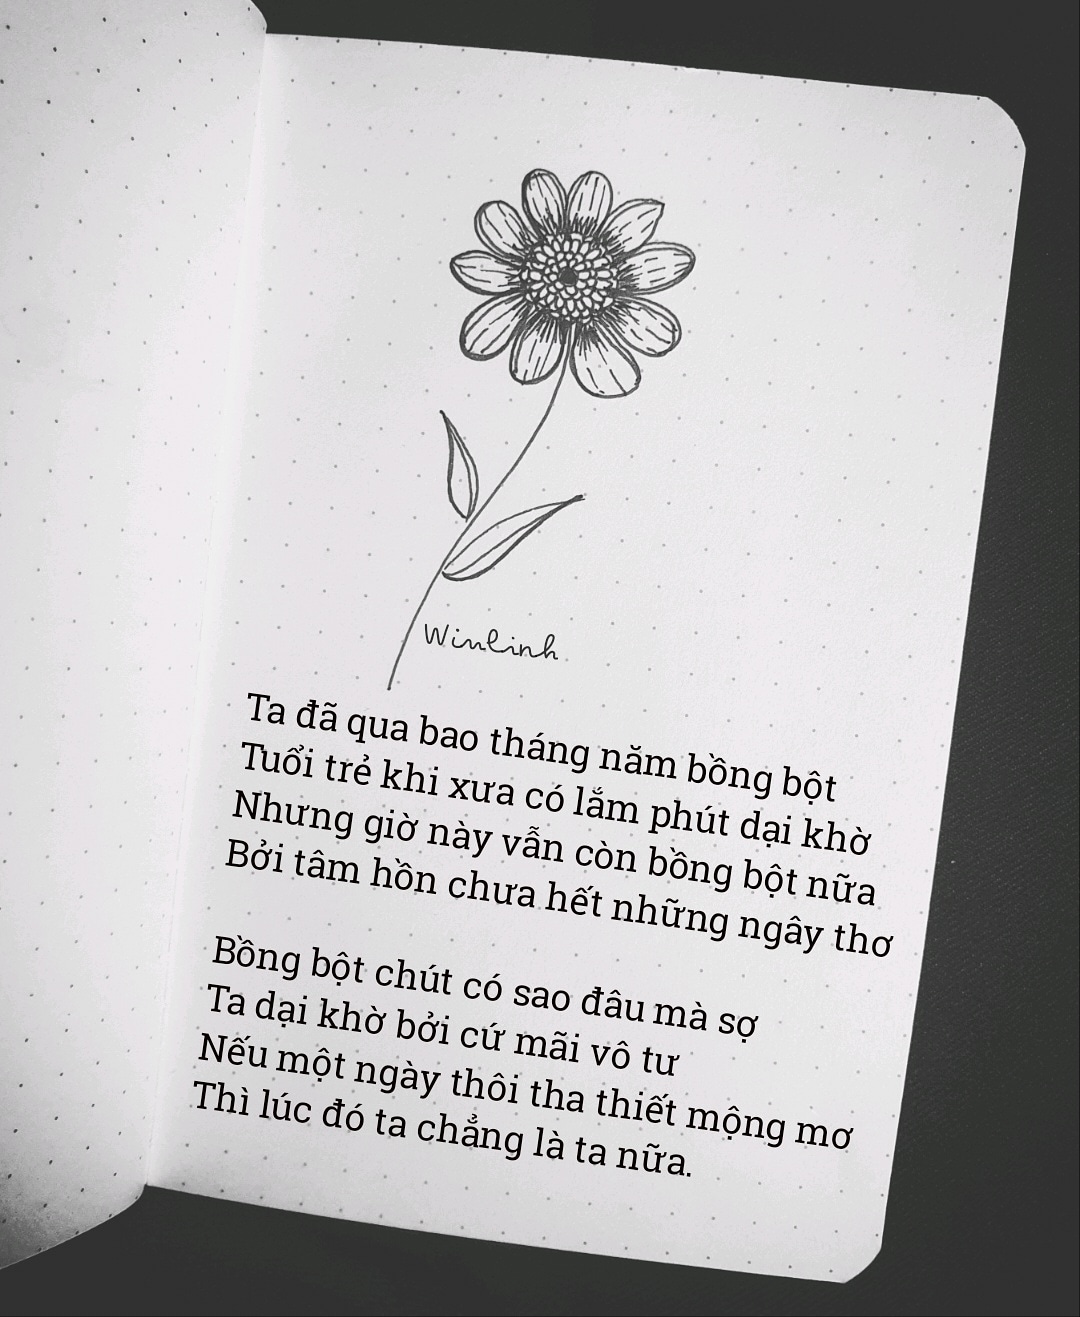 Winlinh
Ta đã qua bao tháng năm bồng bột
Tuổi trẻ khi xưa có lắm phút dại khờ
Nhưng giờ này vẫn còn bồng bột nữa
Bởi tâm hồn chưa hết những ngây thơ
Bồng bột chút có sao đâu mà sợ
Ta dại khờ bởi cứ mãi vô tư
Nếu một ngày thôi tha thiết mộng mơ
Thì lúc đó ta chẳng là ta nữa.